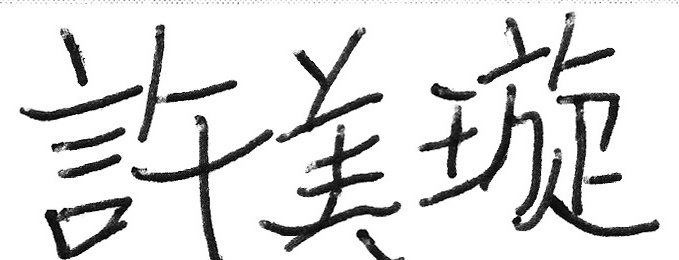 許美璇